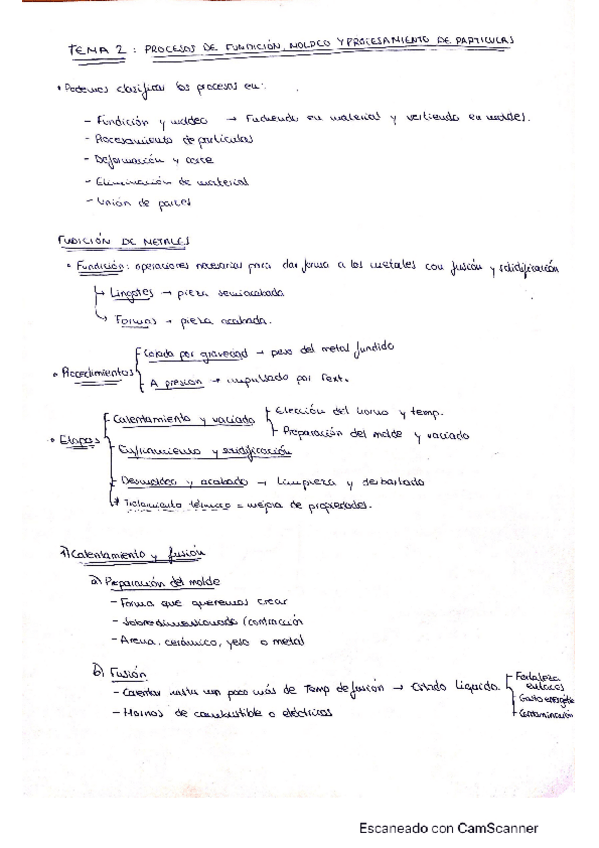 TEMA 2: PROCESOS DE FUNDICIÓN, MOLDEO Y PROCESAMIENTO DE PARTICULAS
• Podemos clasificar los procesos en:
- Fundición y moldeo → Fundiendo un material y vertiendo en moldes.
- Procesamiento de partículas
- Deformación y corte
- Eliminación de material
- Unión de partes
FUDICIÓN DE METALES
• Fundición: operaciones necesarias para dar forma a los metales con fusión y solidificación
↳ Lingotes → pieza semiacabada
↳ Formas → pieza acabada.
• Procedimientos
Colada por gravedad → peso del metal fundido
A presion → impulsado por Fext.
• Etapas
Calentamiento y vaciado
Elección del horno y temp.
Preparación del molde y vaciado
Enfriamiento y solidificación
Desmoldeo y acabado → Limpieza y desbarbado
* Tratamiento térmico = mejora de propiedades.
1) Calentamiento y fusión
a) Preparación del molde
- Forma que queremos crear
- Sobredimensionado (contracción
- Arena, cerámico, yeso o metal
b) Fusión
- Calentar hasta un poco más de Temp de fusión → Estado líquido.
Fortaleza enlaces
Gasto energético
Contaminación
- Hornos de combustible o eléctricos
Escaneado con CamScanner